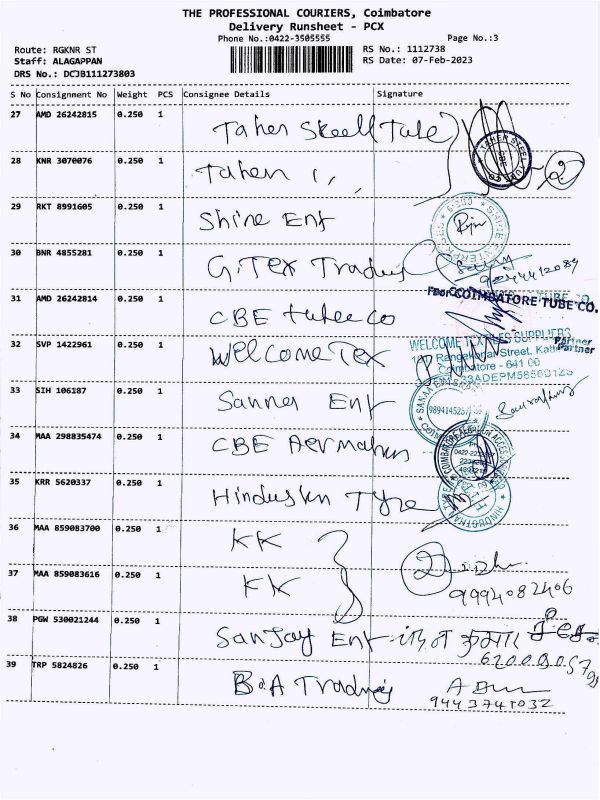 THE PROFESSIONAL COURIERS, Coimbatore
Delivery Runsheet - PCX
Phone No.:0422-3505555 Page No.:3
Route: RGKNR ST RS No.: 1112738
Staff: ALAGAPPAN RS Date: 07-Feb-2023
DRS No.: DCJB111273803
S No Consignment No Weight PCS Consignee Details Signature
27 AMD 26242815 0.250 1 Taher Steell (Tube)
28 KNR 3070076 0.250 1 Taher ,, 2
29 RKT 8991605 0.250 1 Shine Ent
30 BNR 4855281 0.250 1 G.Tex Trading
For COIMBATORE TUBE CO.
31 AMD 26242814 0.250 1 CBE tubee co
Partner
32 SVP 1422961 0.250 1 Welcome Tex
WELCOME TEX SUPPLIERS
Rangakonar Street,
Coimbatore - 641
33ADEPM5856B1Z6
33 SIH 106187 0.250 1 Sanna Ent
34 MAA 298835474 0.250 1 CBE
35 KRR 5620337 0.250 1 Hindustan Tyre
36 MAA 859083700 0.250 1 KK
37 MAA 859083616 0.250 1 KK 2
9994082406
38 PGW 530021244 0.250 1 Sanjay Ent
39 TRP 5824826 0.250 1 B&A Trading
9443741032